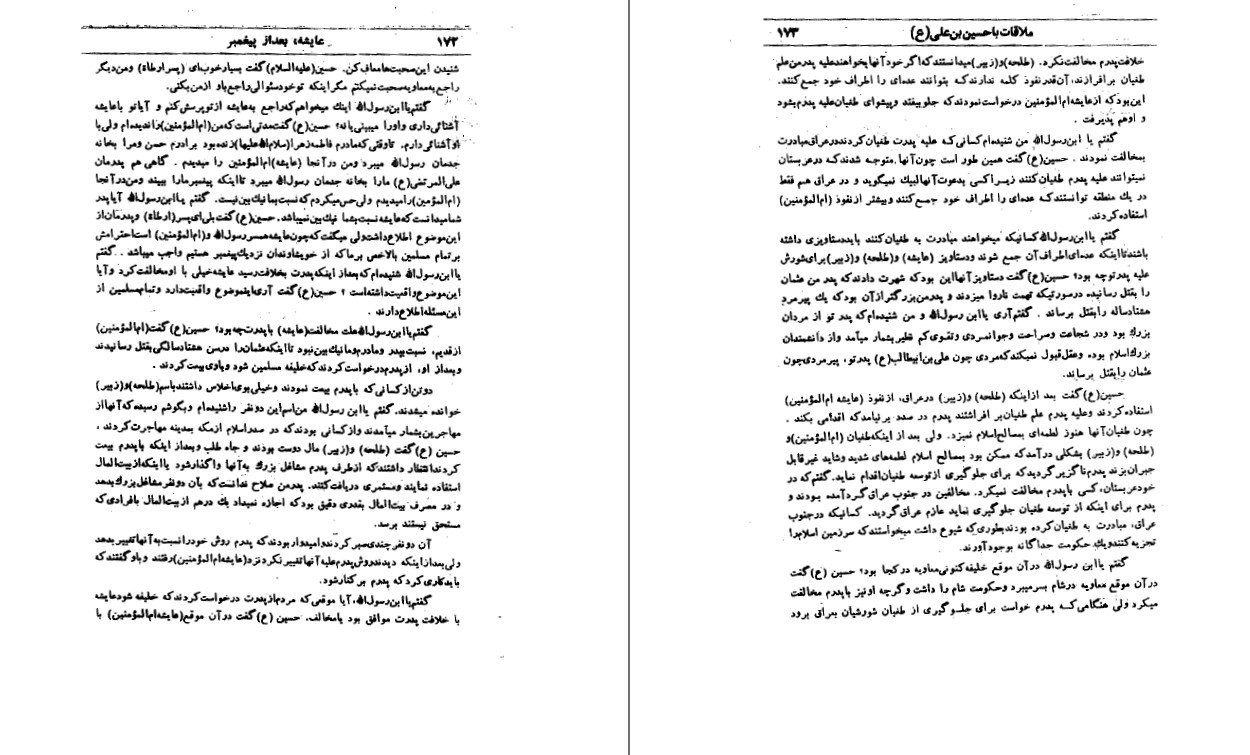 ۱۷۲ عایشه، بعد از پیغمبر
شنیدن این صحبت‌ها معاف کن. حسین (علیه‌السلام) گفت بسیار خوب‌ای (پسر ارطاة) و من دیگر
راجع به معاویه صحبت نمیکنم مگر اینکه تو خود سئوالی راجع باد از من بکنی.
گفتم یا ابن رسول‌الله اینك میخواهم که راجع به عایشه از تو پرسش کنم و آیا تو با عایشه
آشنائی داری و او را میبینی یا نه؟ حسین (ع) گفت مدتی است که من (ام‌المؤمنین) را ندیده‌ام ولی با
او آشنائی دارم. تا وقتی که مادرم فاطمه زهرا (سلام‌الله علیها) زنده بود برادرم حسن و مرا بخانه
جدمان رسول‌الله میبرد و من در آنجا (عایشه) ام‌المؤمنین را میدیدم . گاهی هم پدرمان
علی المرتضی (ع) ما را بخانه جدمان رسول‌الله میبرد تا اینکه پیغمبر ما را ببیند و من در آنجا
(ام‌المؤمنین) را میدیدم ولی حس میکردم که نسبت بما نیك بین نیست. گفتم یا ابن رسول‌الله آیا پدر
شما میدانست که عایشه نسبت بشما نیك بین نمیباشد. حسین (ع) گفت بلی ای پسر (ارطاة) و پدرمان از
این موضوع اطلاع داشت ولی میگفت که چون عایشه همسر رسول‌الله و (ام‌المؤمنین) است احترامش
بر تمام مسلمین بالاخص بر ما که از خویشاوندان نزدیك پیغمبر هستیم واجب میباشد . گفتم
یا ابن رسول‌الله شنیده‌ام که بعد از اینکه پدرت بخلافت رسید عایشه خیلی با او مخالفت کرد و آیا
این موضوع واقعیت داشته است ؟ حسین (ع) گفت آری این موضوع واقعیت دارد و تمام مسلمین از
این مسئله اطلاع دارند .
گفتم یا ابن رسول‌الله علت مخالفت (عایشه) با پدرت چه بود؟ حسین (ع) گفت (ام‌المؤمنین)
از قدیم، نسبت بپدر و مادرم و ما نیك بین نبود تا اینکه عثمان را در سن هشتاد سالگی بقتل رسانیدند
و بعد از او، از پدرم درخواست کردند که خلیفه مسلمین شود و با وی بیعت کردند .
دو تن از کسانی که با پدرم بیعت نمودند و خیلی بوی اخلاص داشتند باسم (طلحه) و (زبیر)
خوانده میشدند. گفتم یا ابن رسول‌الله من اسم این دو نفر را شنیده‌ام و بگوشم رسیده که آنها از
مهاجرین بشمار میآمدند و از کسانی بودند که در صدر اسلام از مکه بمدینه مهاجرت کردند .
حسین (ع) گفت (طلحه) و (زبیر) مال دوست بودند و جاه طلب و بعد از اینکه با پدرم بیعت
کردند انتظار داشتند که از طرف پدرم مشاغل بزرك به آنها واگذار شود یا اینکه از بیت المال
استفاده نمایند و مستمری دریافت کنند. پدر من صلاح ندانست که بآن دو نفر مشاغل بزرك بدهد
و در مصرف بیت‌المال بقدری دقیق بود که اجازه نمیداد یك درهم از بیت المال بافرادی که
مستحق نیستند برسد.
آن دو نفر چندی صبر کردند و امیدوار بودند که پدرم روش خود را نسبت به آنها تغییر بدهد
ولی بعد از اینکه دیدند روش پدرم علیه آنها تغییر نکرد نزد (عایشه ام‌المؤمنین) رفتند و باو گفتند که
باید کاری کرد که پدرم بر کنار شود.
گفتم یا ابن رسول‌الله، آیا موقعی که مردم از پدرت درخواست کردند که خلیفه شود عایشه
با خلافت پدرت موافق بود یا مخالف. حسین (ع) گفت در آن موقع (عایشه ام‌المؤمنین) با
ملاقات با حسین بن علی (ع) ۱۷۳
خلافت پدرم مخالفت نکرد. (طلحه) و (زبیر) میدانستند که اگر خود آنها بخواهند علیه پدر من علم
طغیان برافرازند، آن قدر نفوذ کلمه ندارند که بتوانند عده‌ای را اطراف خود جمع کنند.
این بود که از عایشه ام‌المؤمنین درخواست نمودند که جلو بیفتد و پیشوای طغیان علیه پدرم بشود
و او هم پذیرفت .
گفتم یا ابن رسول‌الله من شنیده‌ام کسانی که علیه پدرت طغیان کردند در عراق مبادرت
بمخالفت نمودند . حسین (ع) گفت همین طور است چون آنها متوجه شدند که در عربستان
نمیتوانند علیه پدرم طغیان کنند زیرا کسی بدعوت آنها لبیك نمیگوید و در عراق هم فقط
در یك منطقه توانستند که عده‌ای را اطراف خود جمع کنند و بیشتر از نفوذ (ام‌المؤمنین)
استفاده کردند.
گفتم یا ابن رسول‌الله کسانیکه میخواهند مبادرت به طغیان کنند باید دستاویزی داشته
باشند تا اینکه عده‌ای اطراف آن جمع شوند و دستاویز (عایشه) و (طلحه) و (زبیر) برای شورش
علیه پدرتو چه بود؟ حسین (ع) گفت دستاویز آنها این بود که شهرت دادند که پدر من عثمان
را بقتل رسانیده در صورتیکه تهمت ناروا میزدند و پدر من بزرگتر از آن بود که یك پیرمرد
هشتاد ساله را بقتل برساند . گفتم آری یا ابن رسول‌الله و من شنیده‌ام که پدر تو از مردان
بزرك بود و در شجاعت و صراحت و جوانمردی و تقوی کم نظیر بشمار میآمد و از دانشمندان
بزرك اسلام بوده و عقل قبول نمیکند که مردی چون علی بن ابیطالب (ع) پدر تو، پیرمردی چون
عثمان را بقتل برساند.
حسین (ع) گفت بعد از اینکه (طلحه) و (زبیر) در عراق، از نفوذ (عایشه ام‌المؤمنین)
استفاده کردند و علیه پدرم علم طغیان بر افراشتند پدرم در صدد بر نیامد که اقدامی بکند .
چون طغیان آنها هنوز لطمه‌ای بمصالح اسلام نمیزد. ولی بعد از اینکه طغیان (ام‌المؤمنین) و
(طلحه) و (زبیر) بشکلی در آمد که ممکن بود بمصالح اسلام لطمه‌های شدید و شاید غیر قابل
جبران بزند پدرم ناگزیر گردید که برای جلوگیری از توسعه طغیان اقدام نماید. گفتم که در
خود عربستان، کسی با پدرم مخالفت نمیکرد. مخالفین در جنوب عراق گرد آمده بودند و
پدرم برای اینکه از توسعه طغیان جلوگیری نماید عازم عراق گردید. کسانیکه در جنوب
عراق، مبادرت به طغیان کرده بودند بطوری که شیوع داشت میخواستند که سرزمین اسلام را
تجزیه کنند و یك حکومت جداگانه بوجود آورند.
گفتم یا ابن رسول‌الله در آن موقع خلیفه کنونی معاویه در کجا بود؟ حسین (ع) گفت
در آن موقع معاویه در شام بسر میبرد و حکومت شام را داشت و گرچه او نیز با پدرم مخالفت
میکرد ولی هنگامی که پدرم خواست برای جلوگیری از طغیان شورشیان بعراق برود